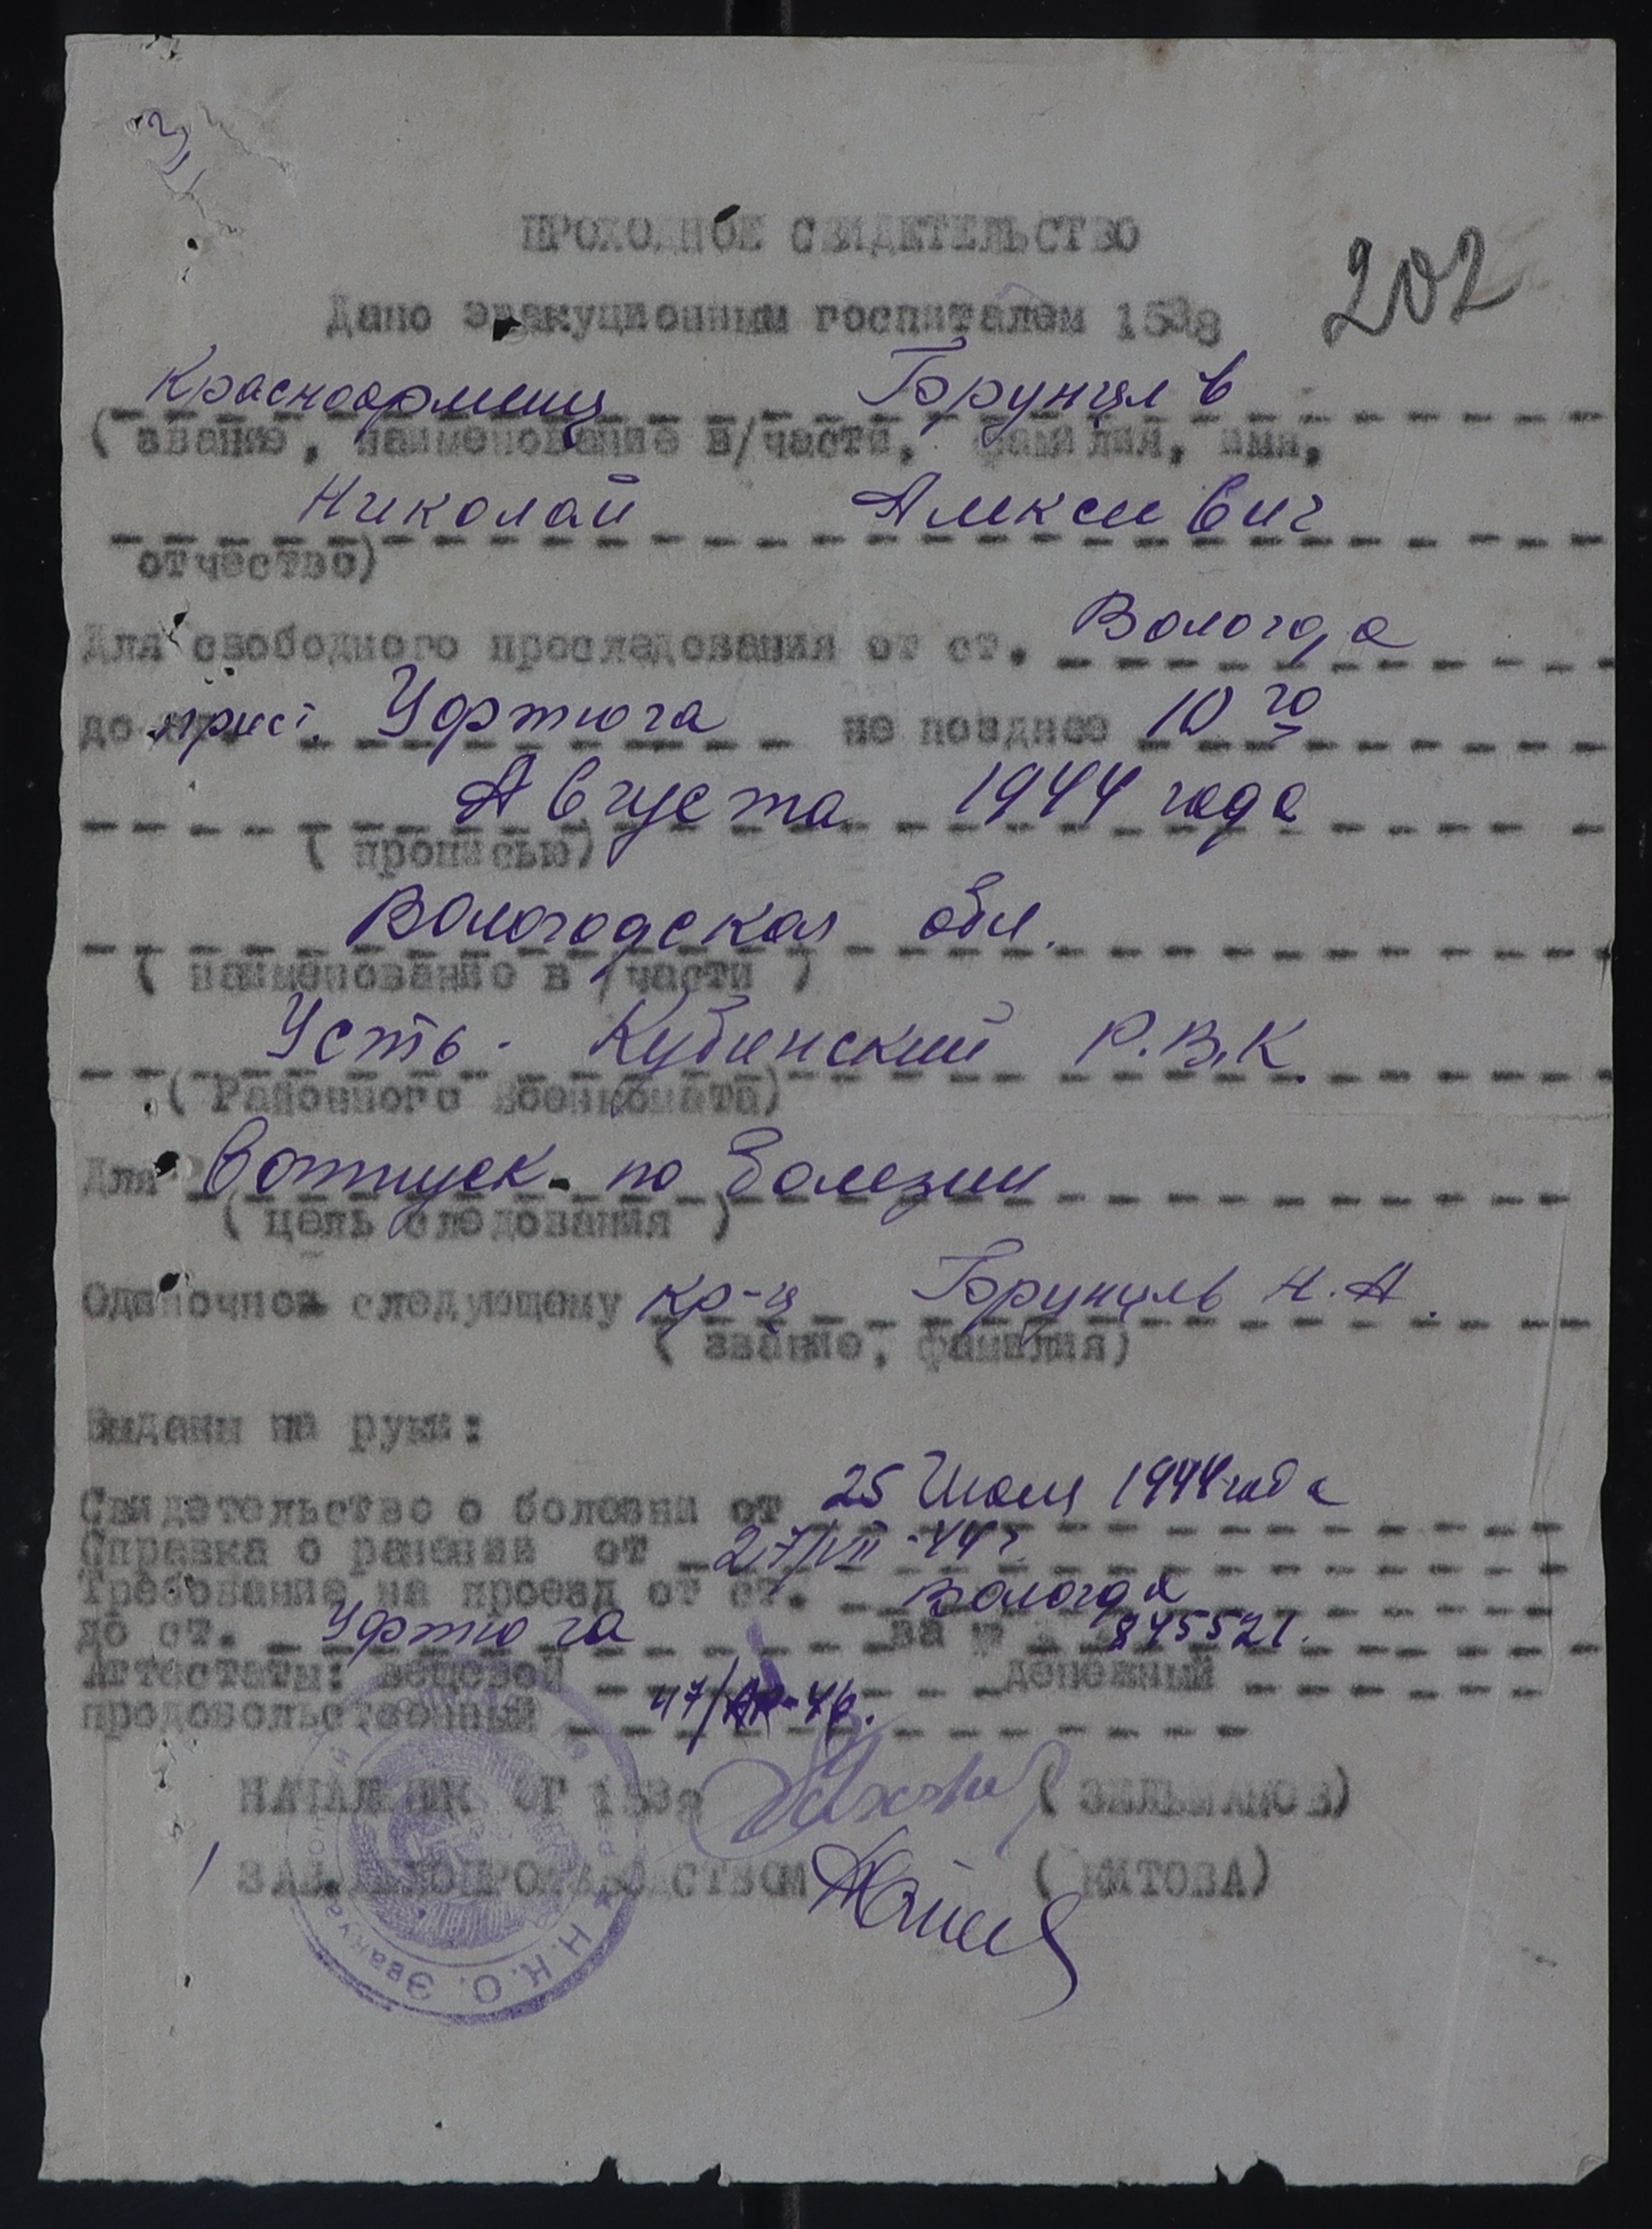 202
ПРОХОДНОЕ СВИДЕТЕЛЬСТВО
Дано эвакуционным госпиталем 1538
Красноармеец Горунцев
( звание, наименование в/части, фамилия, имя,
Николай Алексеевич
отчество)
Для свободного проследования от ст. Вологда
до прист. Уфтюга не позднее 10го
Августа 1944 года
( прописью)
Вологодская обл.
( наименование в /части )
Усть-Кубинский Р.В.К.
( Районного военкомата)
Для в отпуск по болезни
( цель следования )
Одиночном следующему кр-ц Горунцев Н.А.
( звание, фамилия)
Выданы на руки:
Свидетельство о болезни от 25 Июля 1944 года
Справка о ранении от 27/VII-44г.
Требование на проезд от ст. Вологда
до ст. Уфтюга за № 845521.
Аттестаты: вещевой денежный
продовольственный
НАЧАЛЬНИК ЭГ 1538 ( ЗИЛЬМАНОВ)
ЗАВ. ДЕЛОПРОИЗВОДСТВОМ ( КИТОВА)
Н.К.О.